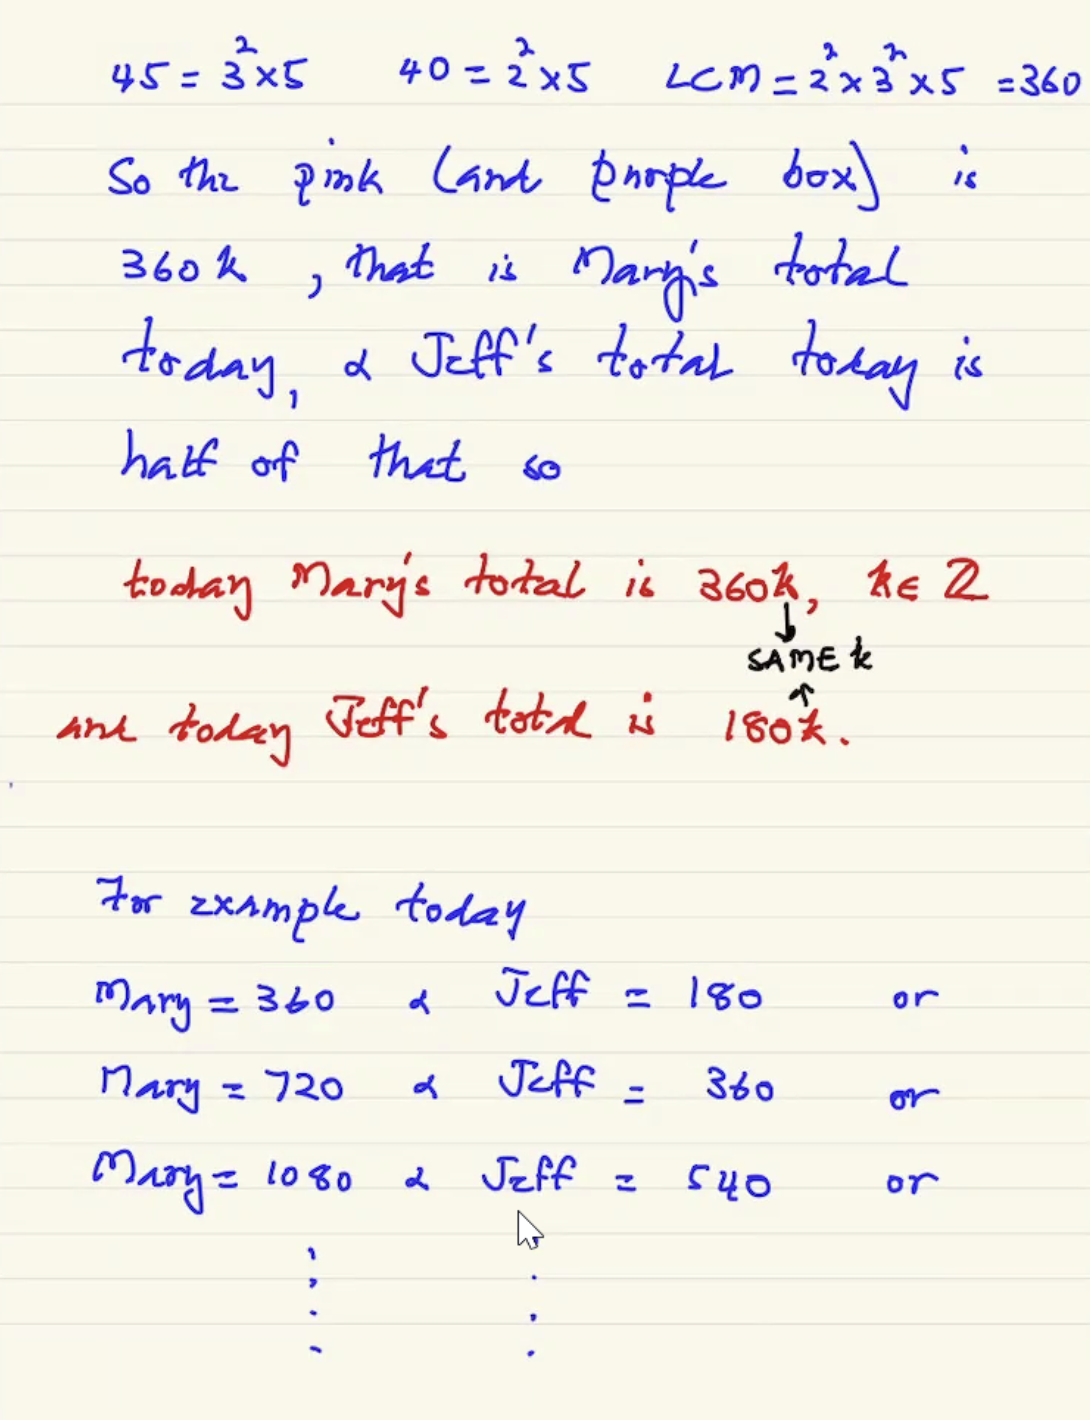 45 = 3²×5 40 = 2²×5 LCM = 2²×3²×5 = 360
So the pink (and purple box) is
360k, that is Mary's total
today, & Jeff's total today is
half of that so
today Mary's total is 360k, k∈ℤ
SAME k
and today Jeff's total is 180k.
For example today
Mary = 360 & Jeff = 180 or
Mary = 720 & Jeff = 360 or
Mary = 1080 & Jeff = 540 or